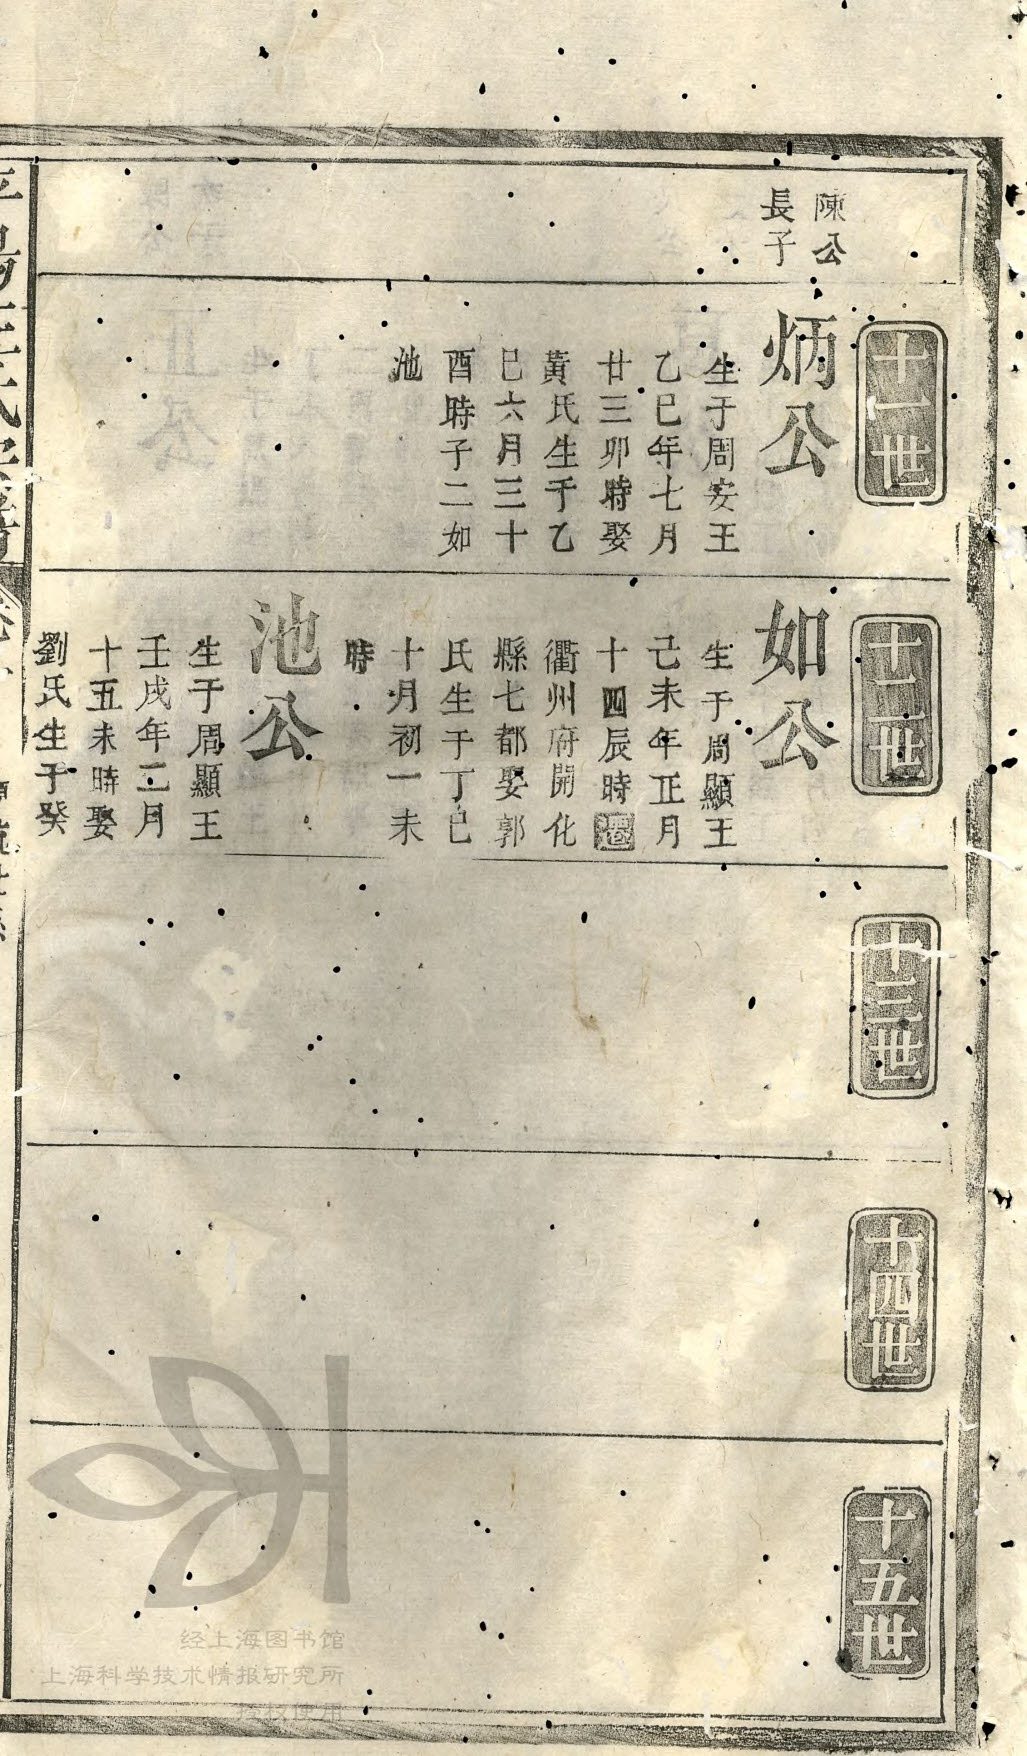 陳公
長子
十一世
炳公
生于周安王
乙巳年七月
廿三卯時娶
黃氏生于乙
巳六月三十
酉時子二如
池
十二世
如公
生于周顯王
己未年正月
十四辰時遷
衢州府開化
縣七都娶郭
氏生于丁巳
十月初一未
時
池公
生于周顯王
壬戌年二月
十五未時娶
劉氏生于癸
十三世
十四世
十五世
经上海图书馆
上海科学技术情报研究所
授权使用